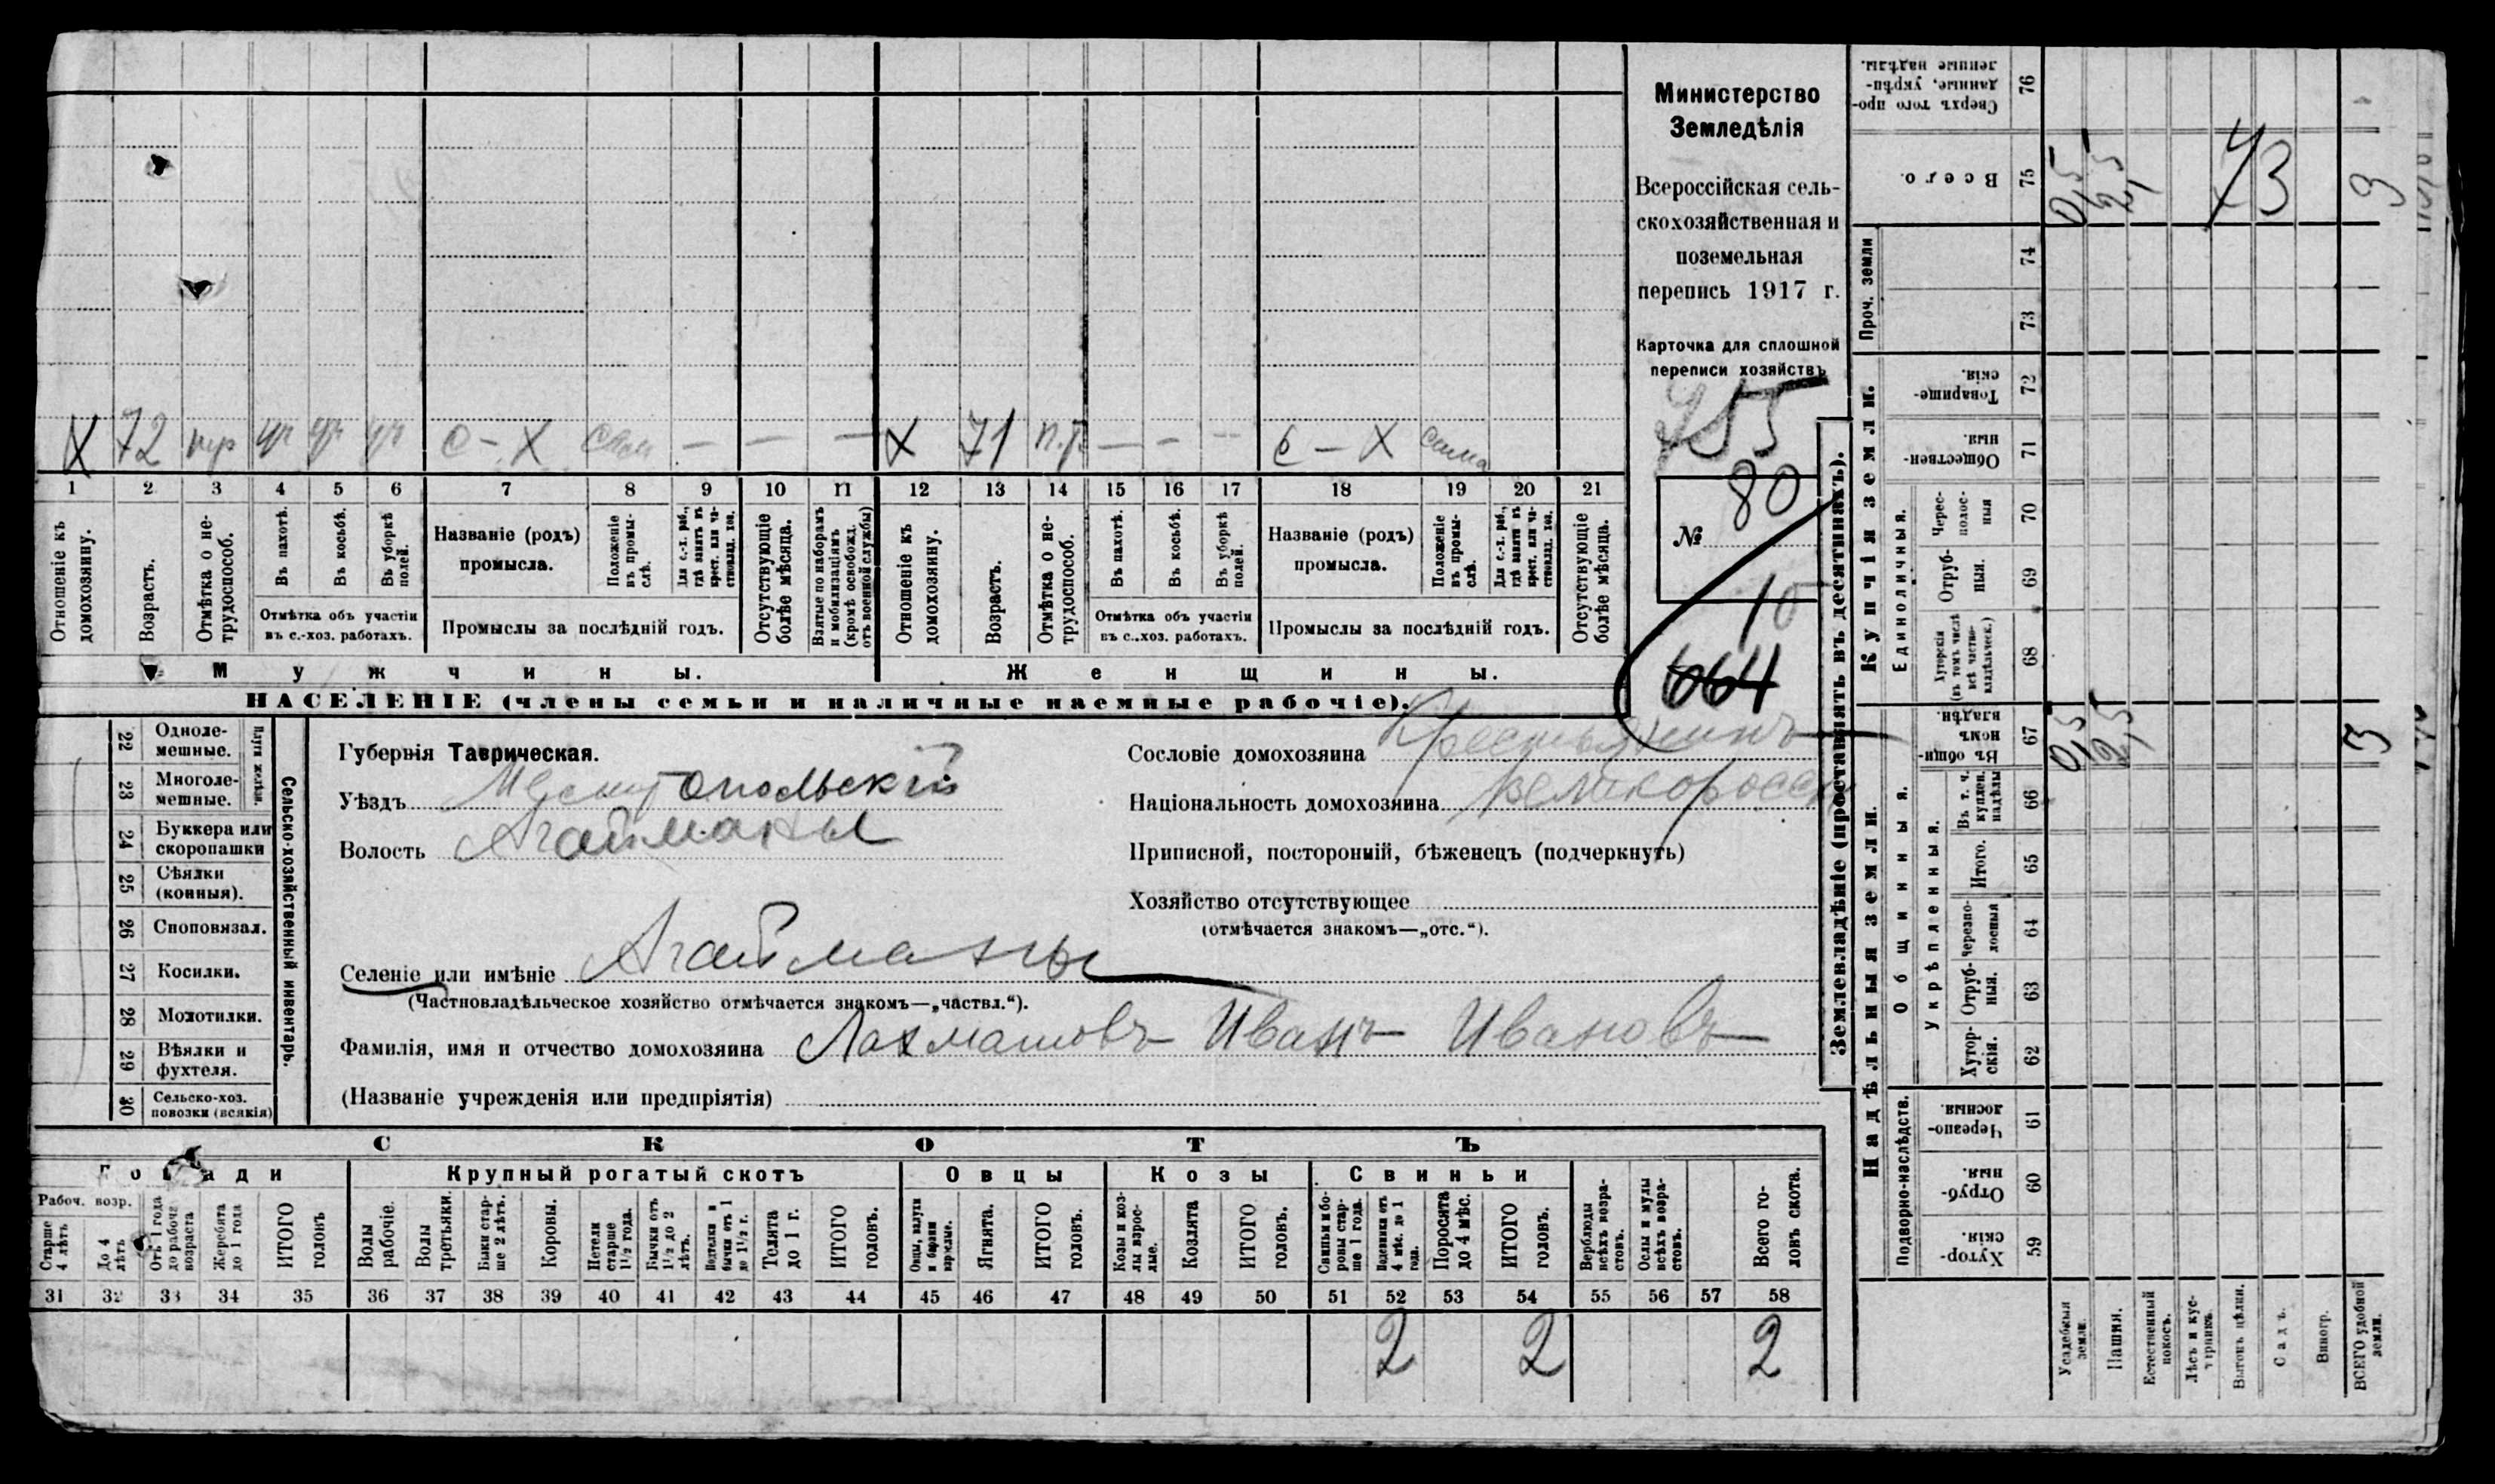 Х 72 нтр уч уч уч с-х сам — — — Х 71 н.т. — — — с-х сама
1 2 3 4 5 6 7 8 9 10 11 12 13 14 15 16 17 18 19 20 21
Отношеніе къ домохозяину.
Возрастъ.
Отмѣтка о нетрудоспособ.
Въ пахотѣ.
Въ косьбѣ.
Въ уборкѣ полей.
Отмѣтка объ участіи
въ с.-хоз. работахъ.
Названіе (родъ)
промысла.
Положеніе въ промыслѣ.
Для с.-х. раб., гдѣ занятъ въ крест. или частновлад. хоз.
Промыслы за послѣдній годъ.
Отсутствующіе болѣе мѣсяца.
Взятые по наборамъ и мобилизаціямъ (кромѣ освобожд. отъ военной службы)
Отношеніе къ домохозяину.
Возрастъ.
Отмѣтка о нетрудоспособ.
Въ пахотѣ.
Въ косьбѣ.
Въ уборкѣ полей.
Отмѣтка объ участіи
въ с.-хоз. работахъ.
Названіе (родъ)
промысла.
Положеніе въ промыслѣ.
Для с.-х. раб., гдѣ занятъ въ крест. или частновлад. хоз.
Промыслы за послѣдній годъ.
Отсутствующіе болѣе мѣсяца.
Мужчины. Женщины.
НАСЕЛЕНІЕ (члены семьи и наличные наемные рабочіе).
Министерство
Земледѣлія
Всероссійская сель-
скохозяйственная и
поземельная
перепись 1917 г.
Карточка для сплошной
переписи хозяйствъ
№ 80
10
664
22 Одноле-
мешные.
23 Многоле-
мешные.
Плуги желѣзн.
24 Буккера или
скоропашки
25 Сѣялки
(конныя).
26 Сноповязал.
27 Косилки.
28 Молотилки.
29 Вѣялки и
фухтеля.
30 Сельско-хоз.
повозки (всякія)
Сельско-хозяйственный инвентарь.
Губернія Таврическая.
Уѣздъ Мелитопольскій
Волость Агайманы
Сословіе домохозяина Крестьянинъ
Національность домохозяина великороссъ
Приписной, посторонній, бѣженецъ (подчеркнуть)
Хозяйство отсутствующее
(отмѣчается знакомъ—„отс.“).
Селеніе или имѣніе Агайманы
(Частновладѣльческое хозяйство отмѣчается знакомъ—„частвл.“).
Фамилія, имя и отчество домохозяина Лахматовъ Иванъ Ивановъ
(Названіе учрежденія или предпріятія)
СКОТЪ
Лошади Крупный рогатый скотъ Овцы Козы Свиньи
Рабоч. возр.
Старше 4 лѣтъ
До 4 лѣтъ
Отъ 1 года до рабоча возраста
Жеребята до 1 года
ИТОГО головъ
Волы рабочіе.
Волы третьяки.
Быки старше 2 лѣтъ.
Коровы.
Нетели старше 1½ года.
Бычки отъ 1½ до 2 лѣтъ.
Подтелки и бычки отъ 1 до 1½ г.
Телята до 1 г.
ИТОГО головъ.
Овцы, валухи и бараны взрослые.
Ягнята.
ИТОГО головъ.
Козы и козлы взрослые.
Козлята
ИТОГО головъ.
Свиньи и боровы старше 1 года.
Подсвинки отъ 4 мѣс. до 1 года.
Поросята до 4 мѣс.
ИТОГО головъ.
Верблюды всѣхъ возрастовъ.
Ослы и мулы всѣхъ возрастовъ.
Всего головъ скота.
31 32 33 34 35 36 37 38 39 40 41 42 43 44 45 46 47 48 49 50 51 52 53 54 55 56 57 58
2 2 2
Землевладѣніе (проставлять въ десятинахъ).
Надѣльныя земли. Купчія земли. Проч. земли
Подворно-наслѣдств. Общинныя. Укрѣпленныя. Единоличныя.
59 Хутор-
скія.
60 Отруб-
ныя.
61 Черезпо-
лосныя.
62 Хутор-
скія.
63 Отруб-
ныя.
64 Черезпо-
лосныя
65 Итого.
66 Въ т. ч. куплен. надѣлы
67 Въ общи-
номъ
владѣн.
68 Хуторскія (въ томъ числѣ всѣ частно-владѣльческ.)
69 Отруб-
ныя.
70 Черес-
полос-
ныя
71 Обществен-
ныя.
72 Товарище-
скія.
73
74
75 Всего.
76 Сверхъ того про-
данные, укрѣп-
ленные надѣлы.
Усадебныя земли.
Пашня.
Естественный покосъ.
Лѣсъ и кустарникъ.
Выгонъ цѣлин.
Садъ.
Виногр.
ВСЕГО удобной земли.
0,5 2,5 3
0,5 2,5 3